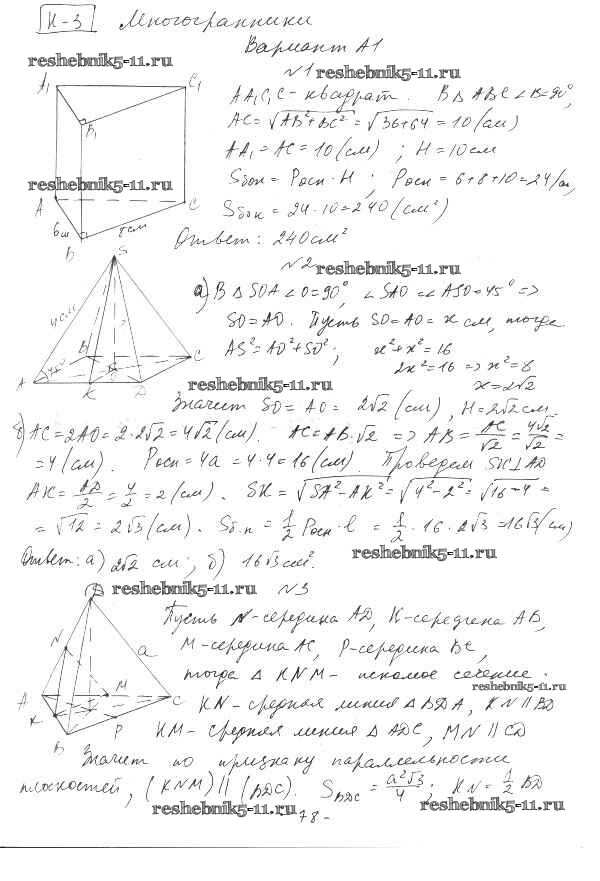 К-3 Многогранники
Вариант А1
reshebnik5-11.ru
№1 reshebnik5-11.ru
A₁ C₁ B₁
AA₁C₁C - квадрат. В △ ABC ∠B=90°,
AC=√AB²+BC² = √36+64 = 10 (см)
AA₁ = AC = 10 (см) ; H = 10см
reshebnik5-11.ru
Sбок = Pосн · H ; Pосн = 6+8+10=24(см)
A C
Sбок = 24 · 10 = 240 (см²)
6см 8см
B
Ответ: 240 см²
S
№2 reshebnik5-11.ru
а) В △ SOA ∠O=90°, ∠SAO = ∠ASO=45° =>
4см
SO=AO. Пусть SO=AO=x см, тогда
AS²=AO²+SO²; x²+x²=16
2x²=16 => x²=8
x=2√2
A 45° B C K D
reshebnik5-11.ru
Значит SO = AO = 2√2 (см), H=2√2 см.
б) AC=2AO=2·2√2=4√2 (см). AC=AB·√2 => AB=AC/√2=4√2/√2=
=4 (см). Pосн=4a=4·4=16 (см). Проведем SK⊥AD
AK=AD/2=4/2=2 (см). SK=√SA²-AK²=√4²-2²=√16-4=
=√12=2√3 (см). Sб.п=1/2 Pосн·l = 1/2·16·2√3=16√3(см)
reshebnik5-11.ru
Ответ: а) 2√2 см; б) 16√3 см².
D reshebnik5-11.ru №3
Пусть N-середина AD, K-середина AB,
N a
M-середина AC, P-середина BC,
тогда △ KNM - искомое сечение.
reshebnik5-11.ru
A M C
KN-средняя линия △ BDA, KN ∥ BD
K P
KM-средняя линия △ ADC, MN ∥ CD
B
Значит по признаку параллельности
плоскостей, (KNM) ∥ (BDC). S_BDC = a²√3/4; KN=1/2 BD
reshebnik5-11.ru reshebnik5-11.ru
- 78 -